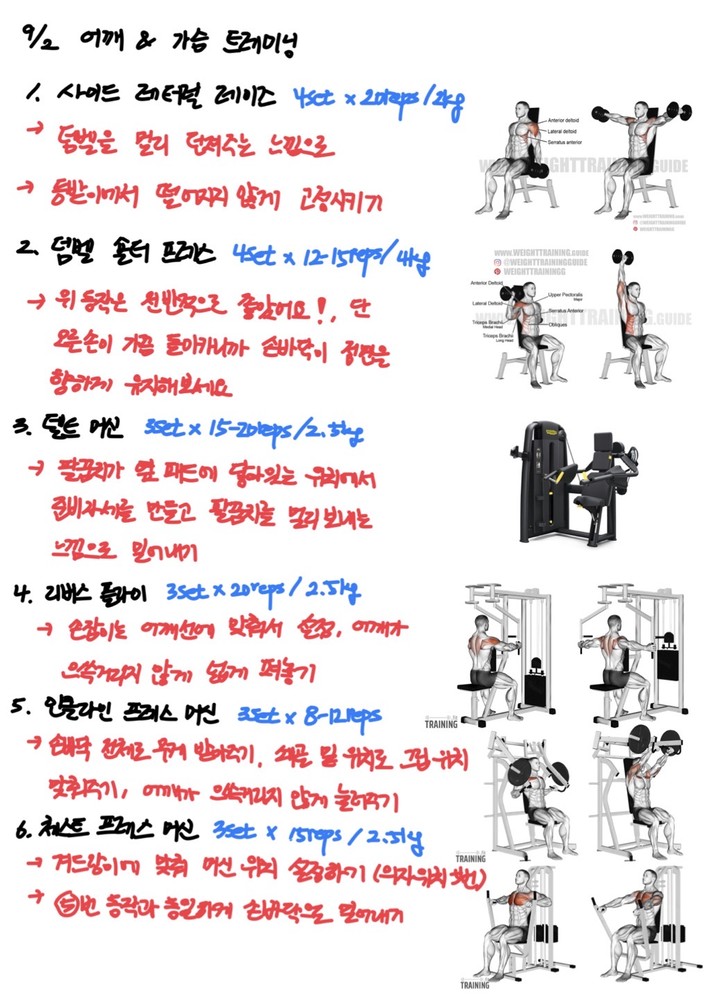 9/2 어깨 & 가슴 트레이닝
1. 사이드 레터럴 레이즈 4set x 20reps/2kg
→ 덤벨을 멀리 던져주는 느낌으로
→ 등받이에서 떨어지지 않게 고정시키기
Anterior deltoid
Lateral deltoid
Serratus anterior
WEIGHTTRAINING.GUIDE
2. 덤벨 숄더 프레스 4set x 12-15reps/4kg
→ 위 동작은 전반적으로 좋았어요!, 단
오른손이 가끔 돌아가니까 손바닥이 정면을
향하게 유지해보세요
WWW.WEIGHTTRAINING.GUIDE
@WEIGHTTRAININGGUIDE
WEIGHTTRAININGG
Anterior Deltoid
Lateral Deltoid
Triceps Brachii
Medial Head
Triceps Brachii
Long Head
Upper Pectoralis
Major
Serratus Anterior
Obliques
3. 델트 머신 3set x 15-20reps/2.5kg
→ 팔꿈치가 옆 패드에 닿아있는 위치에서
준비자세를 만들고 팔꿈치를 멀리 보내는
느낌으로 밀어내기
4. 리버스 플라이 3set x 20reps/2.5kg
→ 손잡이는 어깨선에 맞춰서 설정, 어깨가
으쓱거리지 않게 넓게 펴놓기
TRAINING
5. 인클라인 프레스 머신 3set x 8-12reps
→ 손바닥 전체로 무게 받아주기, 쇄골 밑 위치로 그립 위치
맞춰주기, 어깨가 으쓱거리지 않게 눌러주기
TRAINING
6. 체스트 프레스 머신 3set x 15reps / 2.5kg
→ 겨드랑이에 맞춰 머신 위치 설정하기 (의자위치 3번)
→ ⑤번 동작과 동일하게 손바닥으로 밀어내기
TRAINING